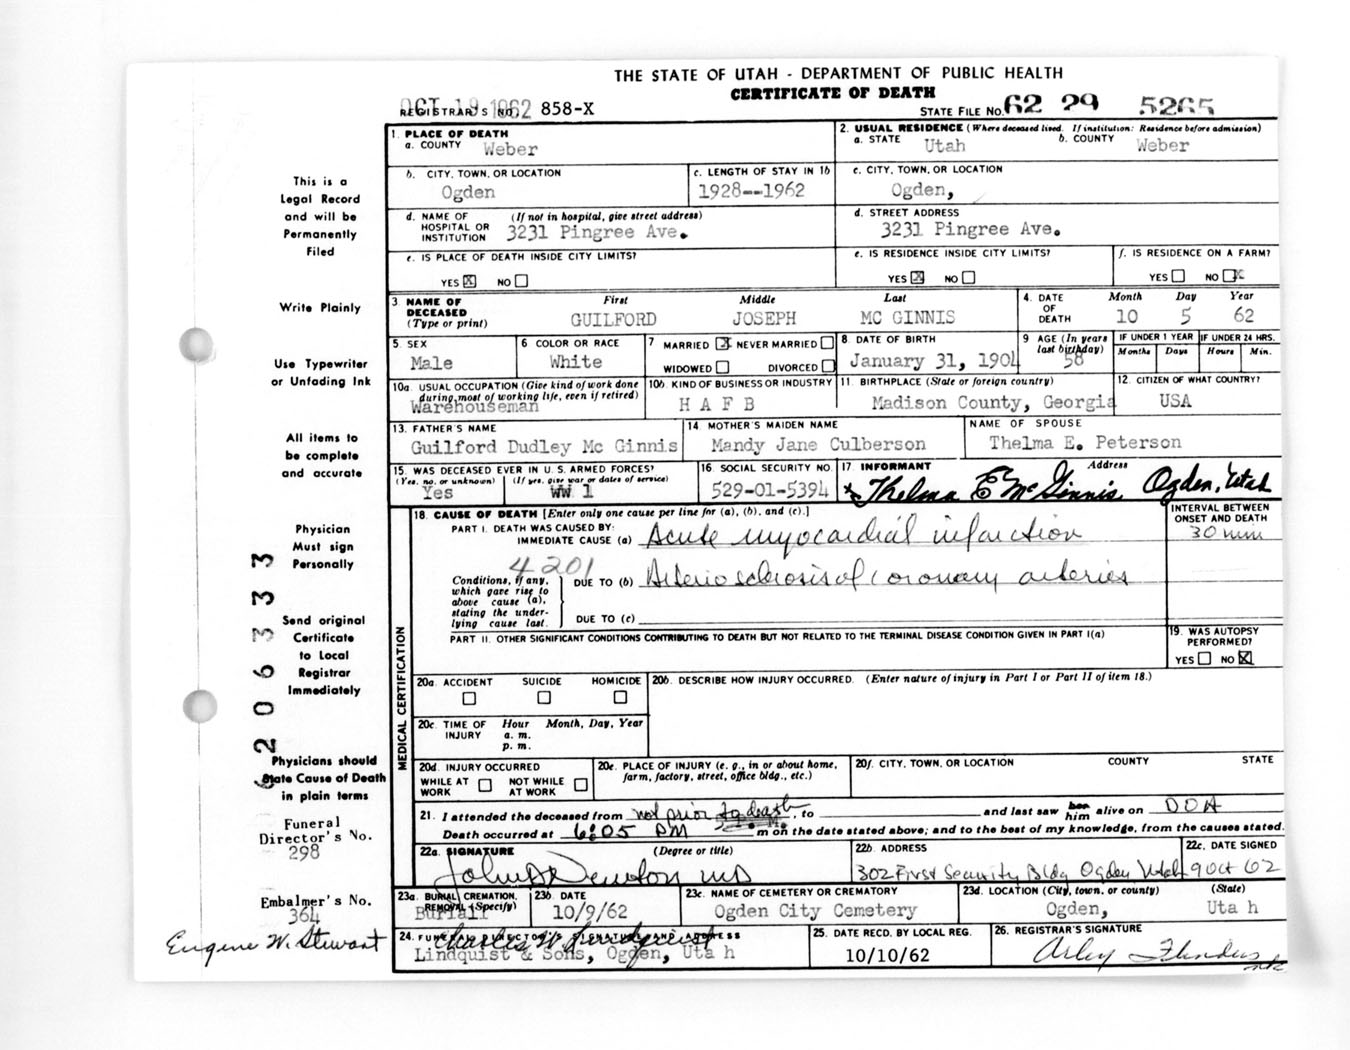 THE STATE OF UTAH - DEPARTMENT OF PUBLIC HEALTH
CERTIFICATE OF DEATH
OCT 19 1962
REGISTRAR'S NO. 858-X
STATE FILE NO. 62 29 5265
1. PLACE OF DEATH
a. COUNTY Weber
2. USUAL RESIDENCE (Where deceased lived. If institution: Residence before admission)
a. STATE Utah b. COUNTY Weber
b. CITY, TOWN, OR LOCATION
Ogden
c. LENGTH OF STAY IN 1b
1928--1962
c. CITY, TOWN, OR LOCATION
Ogden,
d. NAME OF HOSPITAL OR INSTITUTION (If not in hospital, give street address)
3231 Pingree Ave.
d. STREET ADDRESS
3231 Pingree Ave.
e. IS PLACE OF DEATH INSIDE CITY LIMITS?
YES X NO
e. IS RESIDENCE INSIDE CITY LIMITS?
YES X NO
f. IS RESIDENCE ON A FARM?
YES NO X
3. NAME OF DECEASED (Type or print)
First Middle Last
GUILFORD JOSEPH MC GINNIS
4. DATE OF DEATH
Month Day Year
10 5 62
5. SEX
Male
6. COLOR OR RACE
White
7. MARRIED X NEVER MARRIED
WIDOWED DIVORCED
8. DATE OF BIRTH
January 31, 1904
9. AGE (In years last birthday)
58
IF UNDER 1 YEAR
Months Days
IF UNDER 24 HRS.
Hours Min.
10a. USUAL OCCUPATION (Give kind of work done during most of working life, even if retired)
Warehouseman
10b. KIND OF BUSINESS OR INDUSTRY
H A F B
11. BIRTHPLACE (State or foreign country)
Madison County, Georgia
12. CITIZEN OF WHAT COUNTRY?
USA
13. FATHER'S NAME
Guilford Dudley Mc Ginnis
14. MOTHER'S MAIDEN NAME
Mandy Jane Culberson
NAME OF SPOUSE
Thelma E. Peterson
15. WAS DECEASED EVER IN U. S. ARMED FORCES?
(Yes, no, or unknown) (If yes, give war or dates of service)
Yes WW 1
16. SOCIAL SECURITY NO.
529-01-5394
17. INFORMANT Address
x Thelma E McGinnis Ogden, Utah
MEDICAL CERTIFICATION
18. CAUSE OF DEATH [Enter only one cause per line for (a), (b), and (c).]
PART I. DEATH WAS CAUSED BY:
IMMEDIATE CAUSE (a) Acute myocardial infarction
INTERVAL BETWEEN ONSET AND DEATH
30 min
4201
Conditions, if any, which gave rise to above cause (a), stating the underlying cause last.
DUE TO (b) Arteriosclerosis of coronary arteries
DUE TO (c)
PART II. OTHER SIGNIFICANT CONDITIONS CONTRIBUTING TO DEATH BUT NOT RELATED TO THE TERMINAL DISEASE CONDITION GIVEN IN PART I(a)
19. WAS AUTOPSY PERFORMED?
YES NO X
20a. ACCIDENT SUICIDE HOMICIDE
20b. DESCRIBE HOW INJURY OCCURRED. (Enter nature of injury in Part I or Part II of item 18.)
20c. TIME OF INJURY Hour Month, Day, Year
a. m.
p. m.
20d. INJURY OCCURRED
WHILE AT WORK NOT WHILE AT WORK
20e. PLACE OF INJURY (e. g., in or about home, farm, factory, street, office bldg., etc.)
20f. CITY, TOWN, OR LOCATION COUNTY STATE
21. I attended the deceased from not prior to death, to and last saw her him alive on DOA
Death occurred at 6:05 PM m on the date stated above; and to the best of my knowledge, from the causes stated.
22a. SIGNATURE (Degree or title)
John D. Newton MD
22b. ADDRESS
302 First Security Bldg Ogden Utah
22c. DATE SIGNED
9 Oct 62
23a. BURIAL, CREMATION, REMOVAL (Specify)
Burial
23b. DATE
10/9/62
23c. NAME OF CEMETERY OR CREMATORY
Ogden City Cemetery
23d. LOCATION (City, town, or county) (State)
Ogden, Uta h
24. FUNERAL DIRECTOR'S SIGNATURE AND ADDRESS
Charles W. Lindquist
Lindquist & Sons, Ogden, Uta h
25. DATE RECD. BY LOCAL REG.
10/10/62
26. REGISTRAR'S SIGNATURE
Arley Flinders
This is a
Legal Record
and will be
Permanently
Filed
Write Plainly
Use Typewriter
or Unfading Ink
All items to
be complete
and accurate
Physician
Must sign
Personally
Send original
Certificate
to Local
Registrar
Immediately
Physicians should
State Cause of Death
in plain terms
6206333
Funeral
Director's No.
298
Embalmer's No.
364
Eugene W. Stewart